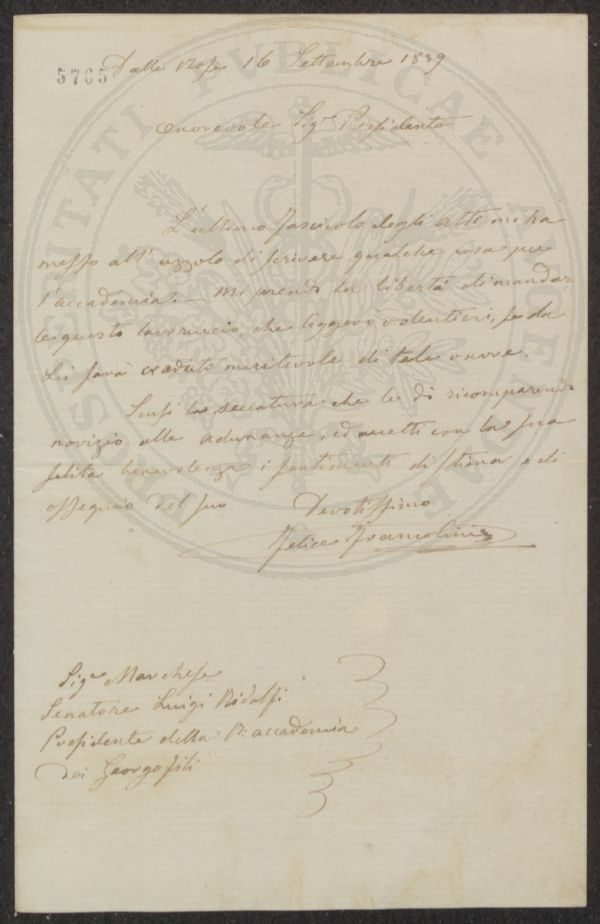 5705 Dalle Rose 16 Settembre 1889
Onorevole Sigr Presidente
L'ultimo fascicolo degli atti mi ha
messo all'uzzolo di scrivere qualche cosa per
l'accademia. — Mi prendo la libertà di mandar
le questo lavoruccio, che leggerò volentieri, se da
Lei sarà creduto meritevole di tale onore.
Scusi la seccatura che le dò ricomparendo
novizio alle adunanze, ed accetti con la sua
solita benevolenza i sentimenti di stima e di
ossequio del suo Devotissimo
Felice Francolini
Sigr Marchese
Senatore Luigi Ridolfi
Presidente della R. accademia
dei Georgofili
PROSPERITATI PUBLICAE AUGENDAE